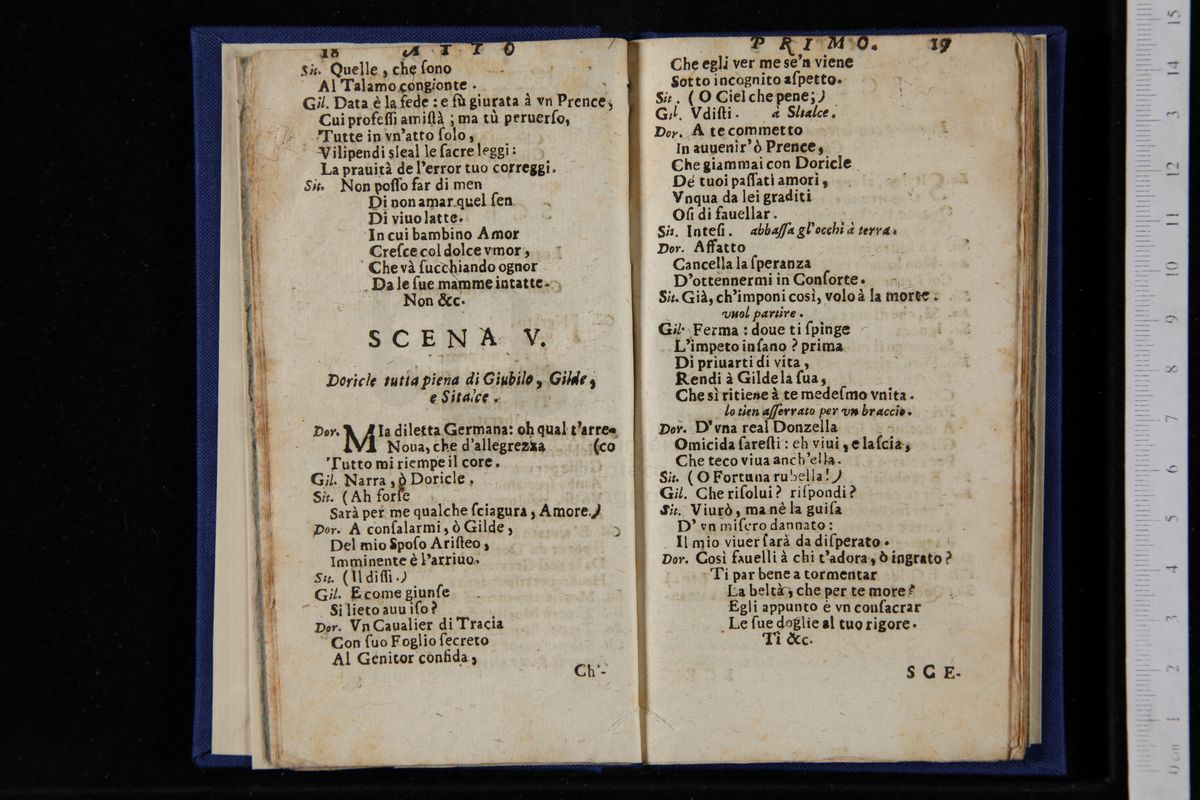 18 ATTO
Sit. Quelle, che ſono
Al Talamo congionte.
Gil. Data è la fede: e fù giurata à vn Prence,
Cui profeſſi amiſtà; ma tù peruerſo,
Tutte in vn'atto ſolo,
Vilipendi sleal le ſacre leggi:
La prauità de l'error tuo correggi.
Sit. Non poſſo far di men
Di non amar quel ſen
Di viuo latte.
In cui bambino Amor
Creſce col dolce vmor,
Che và ſucchiando ognor
Da le ſue mamme intatte.
Non &c.
SCENA V.
Doricle tutta piena di Giubilo, Gilde,
e Sitalce.
Dor. MIa diletta Germana: oh qual t'arre-
Noua, che d'allegrezza (co
Tutto mi riempe il core.
Gil. Narra, ò Doricle.
Sit. (Ah forſe
Sarà per me qualche ſciagura, Amore.)
Dor. A conſalarmi, ò Gilde,
Del mio Spoſo Ariſteo,
Imminente è l'arriuo.
Sit. (Il diſſi.)
Gil. E come giunſe
Si lieto auuiſo?
Dor. Vn Caualier di Tracia
Con ſuo Foglio ſecreto
Al Genitor confida,
Ch'-
PRIMO. 19
Che egli ver me se'n viene
Sotto incognito aſpetto.
Sit. (O Ciel che pene;)
Gil. Vdiſti. à Sitalce.
Dor. A te commetto
In auuenir' ò Prence,
Che giammai con Doricle
De tuoi paſſati amori,
Vnqua da lei graditi
Oſi di fauellar.
Sit. Inteſi. abbaſſa gl'occhi à terra.
Dor. Affatto
Cancella la ſperanza
D'ottennermi in Conſorte.
Sit. Già, ch'imponi così, volo à la morte.
vuol partire.
Gil. Ferma: doue ti ſpinge
L'impeto inſano? prima
Di priuarti di vita,
Rendi à Gilde la ſua,
Che sì ritiene à te medeſmo vnita.
lo tien aſſerrato per vn braccio.
Dor. D'vna real Donzella
Omicida ſareſti: eh viui, e laſcia,
Che teco viua anch'ella.
Sit. (O Fortuna rubella!)
Gil. Che riſolui? riſpondi?
Sit. Viurò, ma nè la guiſa
D' vn miſero dannato:
Il mio viuer ſarà da diſperato.
Dor. Così fauelli à chi t'adora, ò ingrato?
Ti par bene a tormentar
La beltà, che per te more?
Egli appunto è vn conſacrar
Le ſue doglie al tuo rigore.
Ti &c.
SCE-